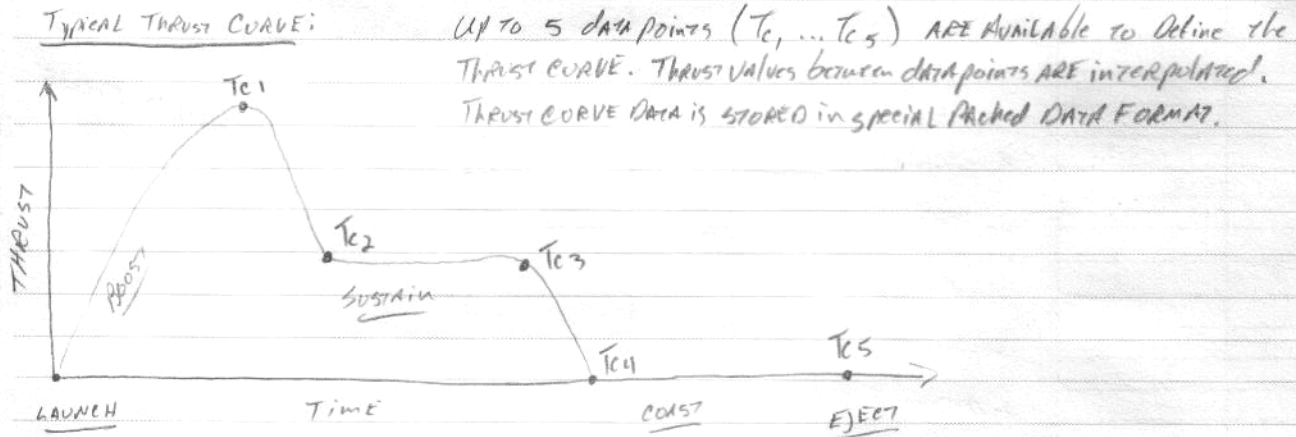 Typical Thrust Curve:
Up to 5 data points (Tc1 ... Tc5) are available to define the
thrust curve. Thrust values between data points are interpolated.
Thrust curve data is stored in special packed data format.
Tc1
THRUST
Boost
Tc2
Tc3
Sustain
Tc4
Tc5
Launch
Time
Coast
Eject